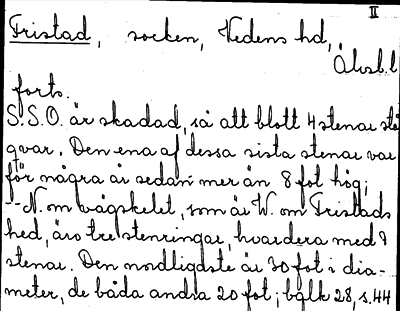 II
Fristad, socken, Vedens hd,
Älvsb.l
forts.
S.S.O. är skadad, så att blott 4 stenar stå
qvar. Den ena af dessa sista stenar var
för några år sedan mer än 8 fot hög;
-- N. om vägskelet, som är W. om Fristads
hed, äro tre stenringar, hvardera med 9
stenar. Den nordligdste är 30 fot i dia-
meter, de båda andra 20 fot; bglk 28, s. 44